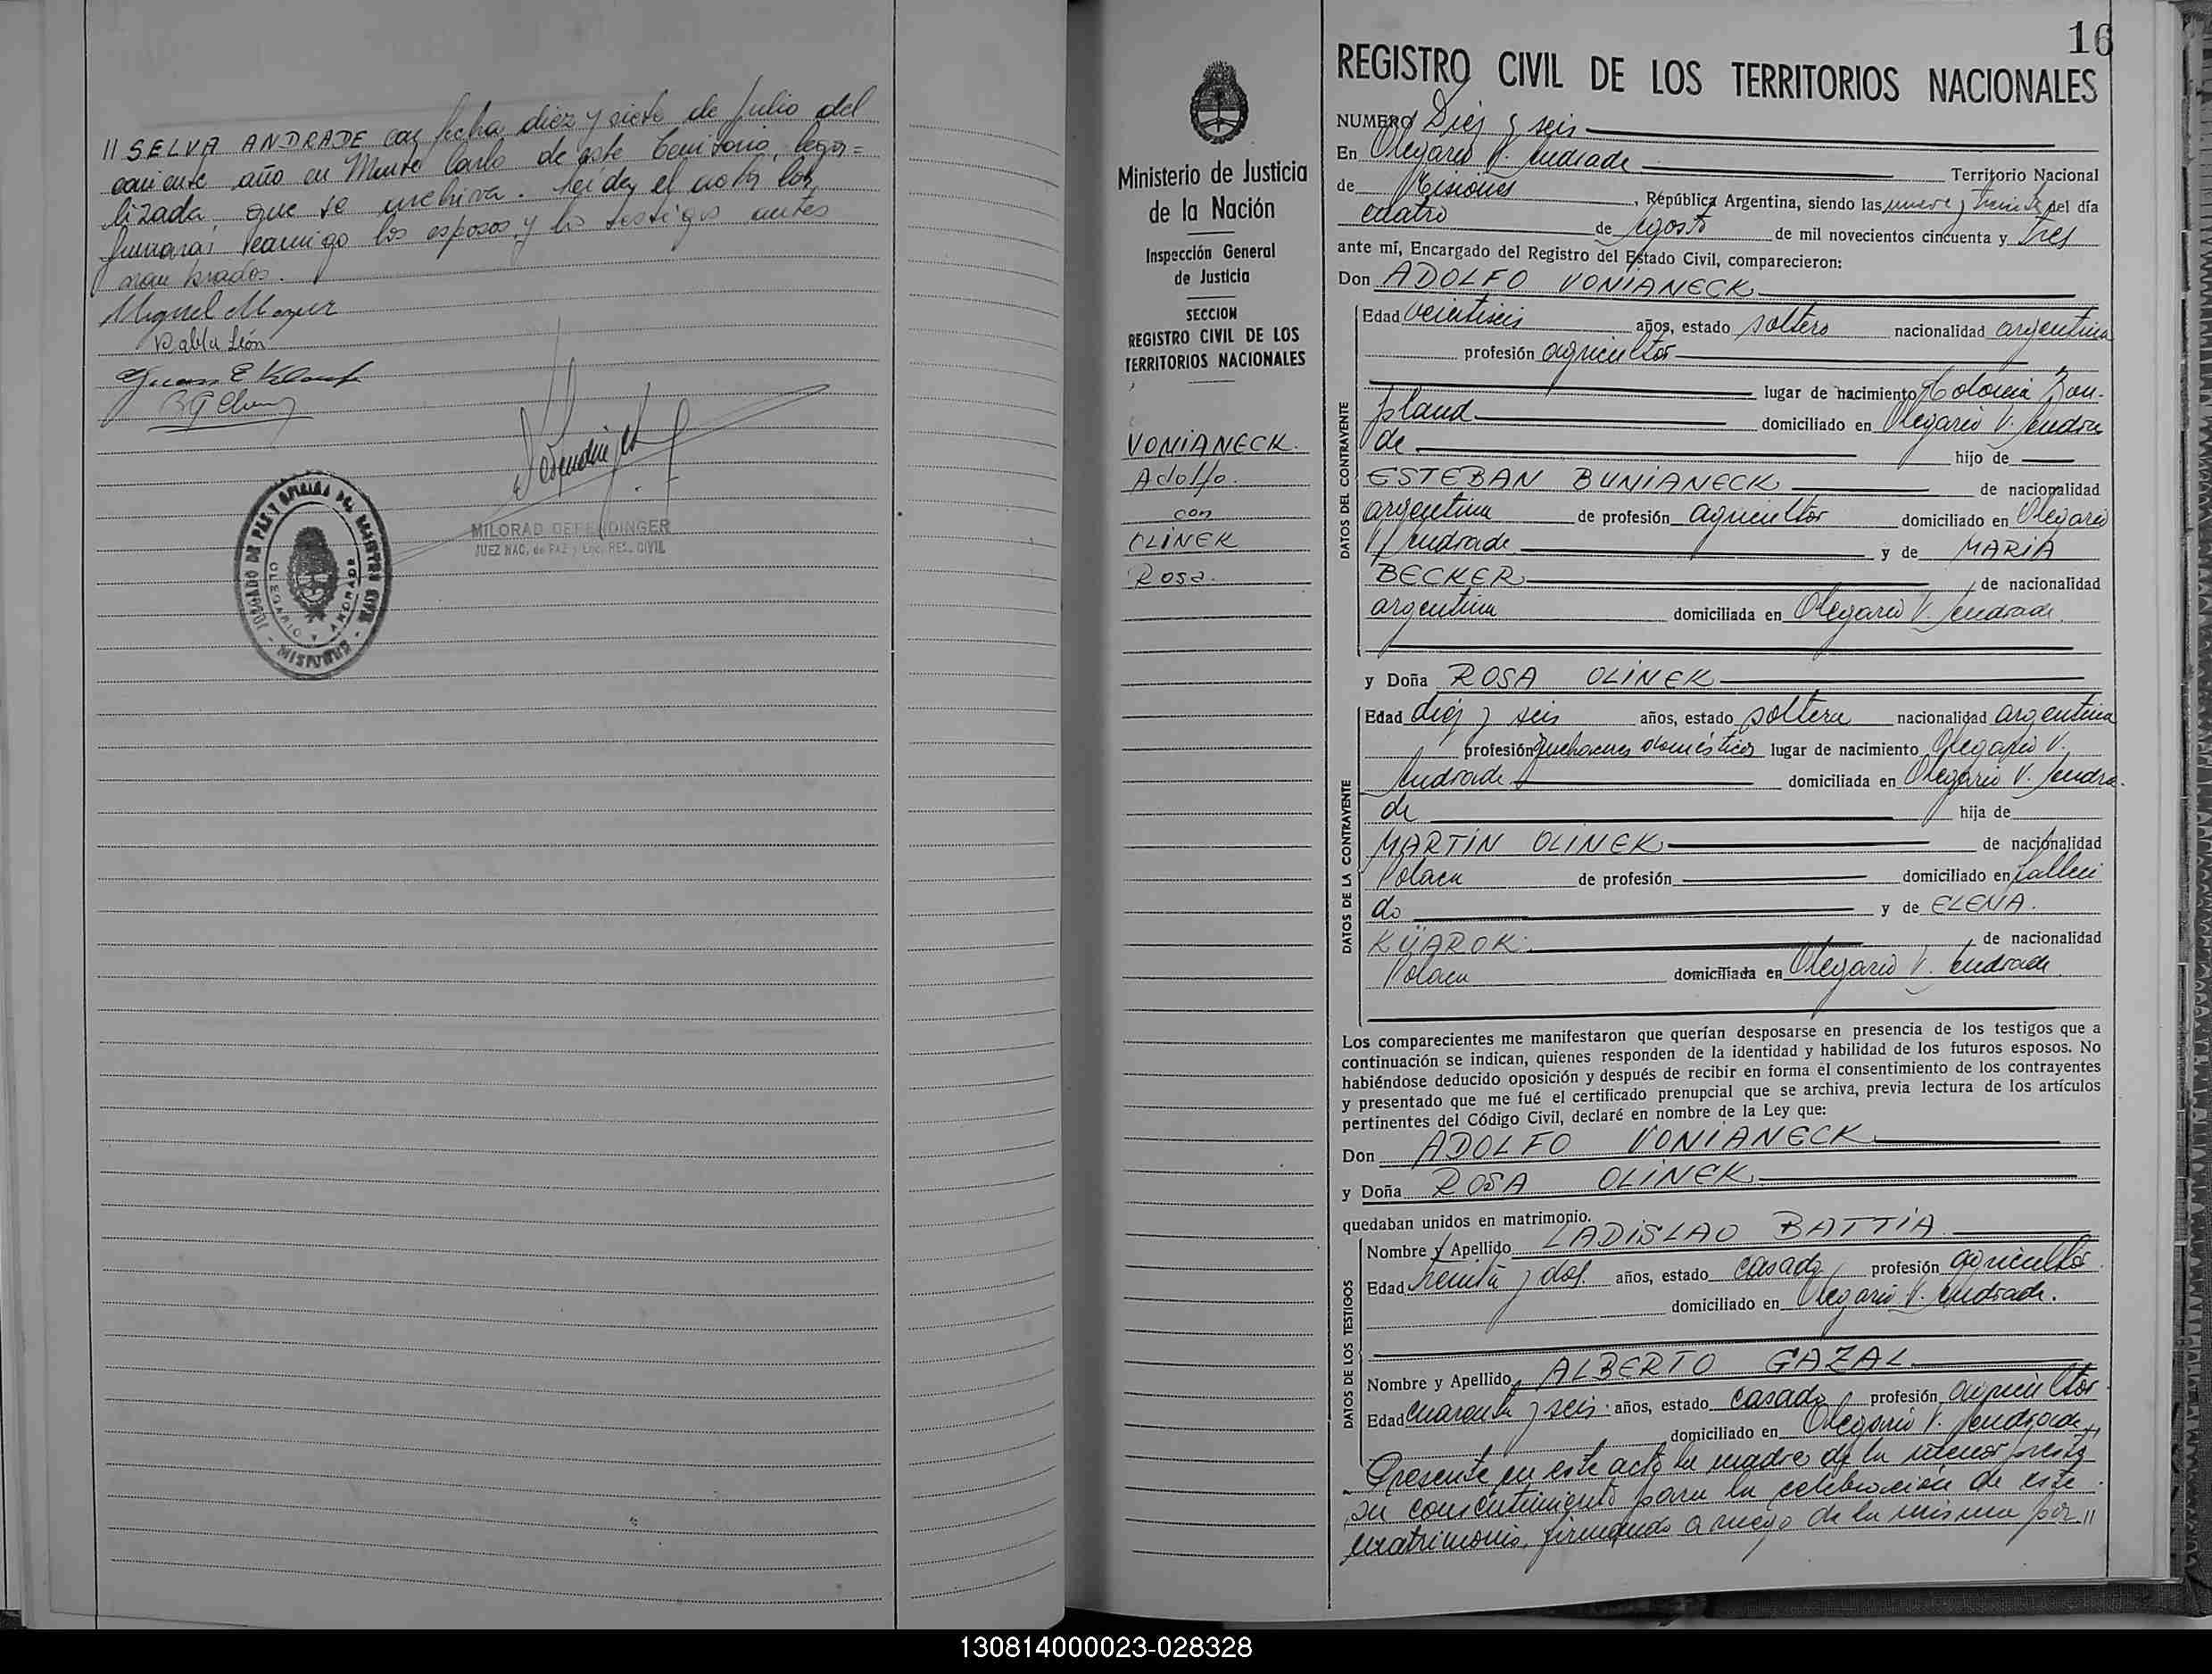 // SELVA ANDRADE con fecha diez y siete de Julio del
corriente año en Monte Carlo de este Territorio, lega=
lizada que se archiva. Leida el acta la
firmaron conmigo los esposos y los testigos antes
nombrados.
Miguel Mazur
Pablo León
Juan E
MILORAD DEFENDINGER
JUEZ NAC. de PAZ y Enc. REG. CIVIL
JUZGADO DE PAZ Y OFICINA DEL REGISTRO CIVIL
OLEGARIO V. ANDRADE
- MISIONES -
16
REGISTRO CIVIL DE LOS TERRITORIOS NACIONALES
Ministerio de Justicia
de la Nación
Inspección General
de Justicia
SECCION
REGISTRO CIVIL DE LOS
TERRITORIOS NACIONALES
VONIANECK.
Adolfo.
con
OLINEK
Rosa.
NUMERO Diez y seis
En Olegario V. Andrade Territorio Nacional
de Misiones, República Argentina, siendo las nueve y treinta del día
cuatro de Agosto de mil novecientos cincuenta y tres
ante mí, Encargado del Registro del Estado Civil, comparecieron:
Don ADOLFO VONIANECK
DATOS DEL CONTRAYENTE
Edad veintiseis años, estado soltero nacionalidad argentina
profesión agricultor
lugar de nacimiento Colonia Bon-
pland domiciliado en Olegario V. Andra
de hijo de
ESTEBAN BUNIANECK de nacionalidad
argentina de profesión agricultor domiciliado en Olegario
V. Andrade y de MARIA
BECKER de nacionalidad
argentina domiciliada en Olegario V. Andrade.
y Doña ROSA OLINEK
DATOS DE LA CONTRAYENTE
Edad diez y seis años, estado soltera nacionalidad argentina
profesión quehaceres domésticos lugar de nacimiento Olegario V.
Andrade domiciliada en Olegario V. Andra-
de hija de
MARTIN OLINEK de nacionalidad
Polaca de profesión domiciliado en Falleci
do y de ELENA.
KUAROK. de nacionalidad
Polaca domiciliada en Olegario V. Andrade.
Los comparecientes me manifestaron que querían desposarse en presencia de los testigos que a
continuación se indican, quienes responden de la identidad y habilidad de los futuros esposos. No
habiéndose deducido oposición y después de recibir en forma el consentimiento de los contrayentes
y presentado que me fué el certificado prenupcial que se archiva, previa lectura de los artículos
pertinentes del Código Civil, declaré en nombre de la Ley que:
Don ADOLFO VONIANECK
y Doña ROSA OLINEK
quedaban unidos en matrimonio.
DATOS DE LOS TESTIGOS
Nombre y Apellido LADISLAO BATTIA
Edad treinta y dos. años, estado casado profesión agricultor
domiciliado en Olegario V. Andrade.
Nombre y Apellido ALBERTO GAZAL
Edad cuarenta y seis años, estado casado profesión agricultor
domiciliado en Olegario V. Andrade
Presente en este acto la madre de la menor presta
su consentimiento para la celebración de este
matrimonio, firmando a ruego de la misma por //
130814000023-028328